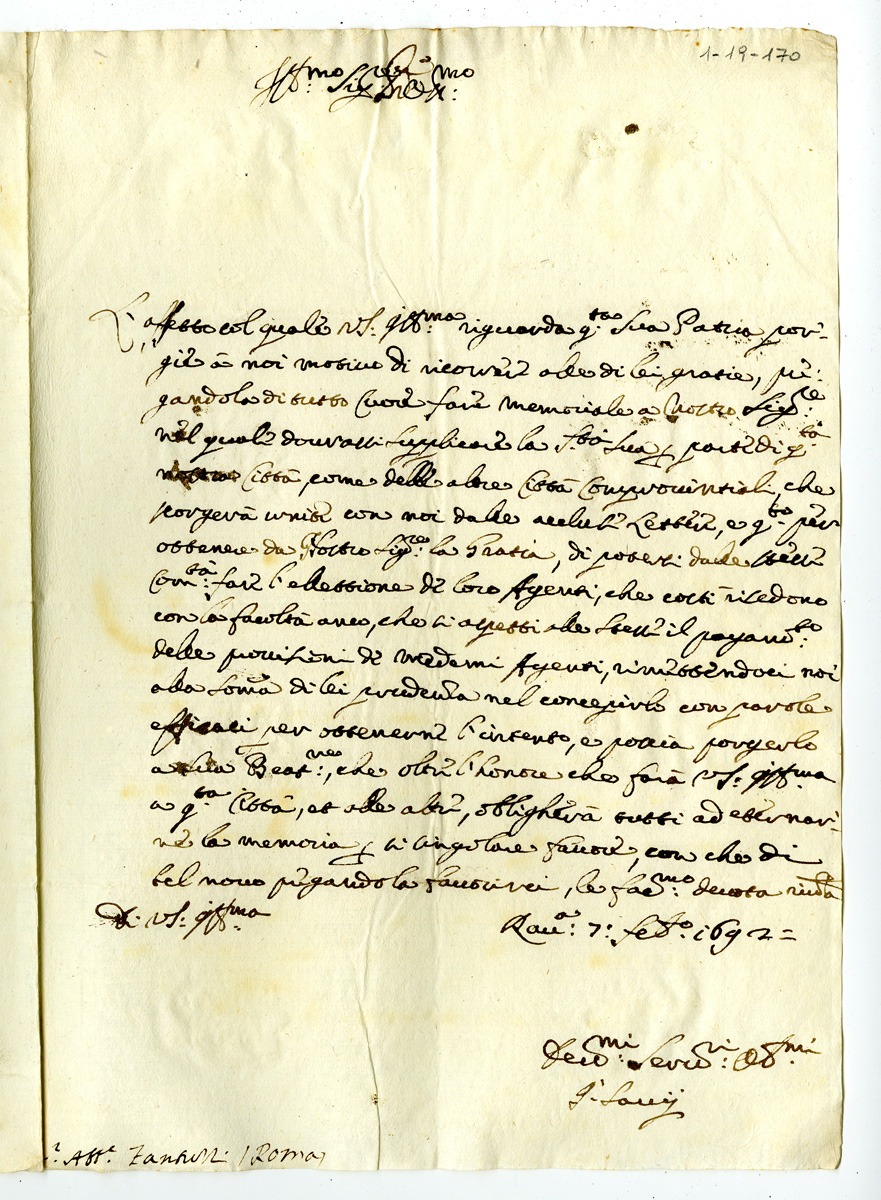 1-19-170
Ill:mo Sig:r
L'affetto col quale VS: Ill:ma riguarda q:ta Sua Patria por-
gie à noi motivo di ricorrere alle di lei gratie, pre:
gandola di tutto Cuore fare memoriale a Nostro Sig:re
nel quale dourassi supplicare la S:tà Sua p parte di q:ta
nostra Città, come delle altre Città Comprovintiali, che
porgerà unite con noi dalle accluse Lettere, e q:to per
ottenere da Nostro Sig:re la Gratia, di potersi dalle stesse
Com:tà fare l'ellettione de loro Agenti, che costì risedono
con la facoltà anco, che si aspetti alle stesse il pagam:to
delle provisioni de medemi Agenti, rimettendoci noi
alla somma di lei prudenza nel concepirlo con parole
efficaci per ottenerne l'intento, e poscia porgerlo
a Sua Beat:ne, che oltre l'honore che farà VS: Ill:ma
a q:ta Città, et alle altre, obligherà tutti ad eternar-
ne la memoria p si singolare favore, con che di
bel novo pregandola favorirci, le fac:mo devota
Di VS: Ill:ma
Rav:a: 7: Feb:o: 1692 =
Deu:mi Seru:ri Obb:mi
Li Savij
Ab:e Zanturri / Roma